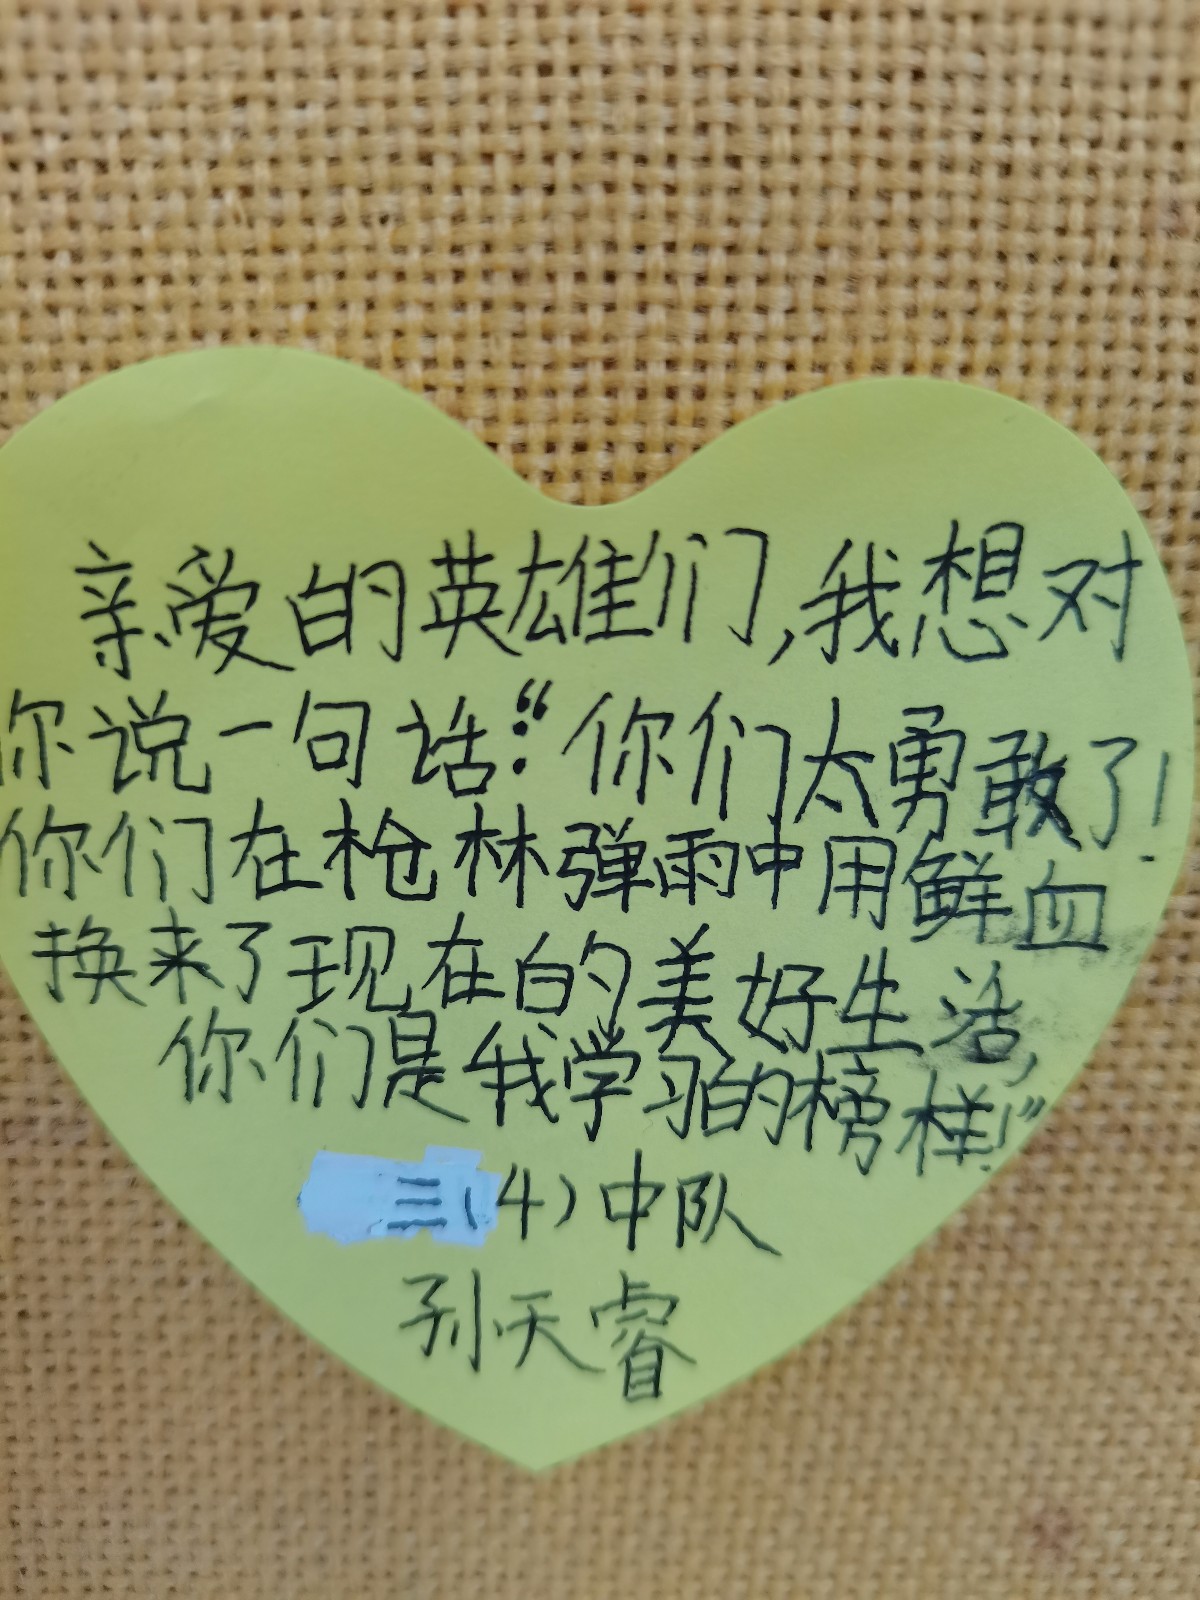 亲爱的英雄们,我想对
你说一句话:“你们太勇敢了!
你们在枪林弹雨中用鲜血
换来了现在的美好生活,
你们是我学习的榜样!”
三(4)中队
孙天睿